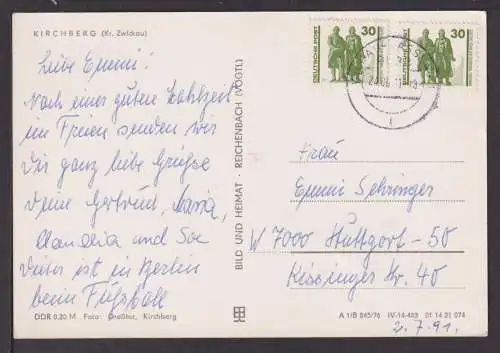 KIRCHBERG (Kr. Zwickau)
Liebe Emmi!
Nach einer guten Mahlzeit
im Freien senden wir
Dir ganz liebe Grüsse
Deine Gertrud, Maria,
Claudia und
Dieter ist in Berlin
beim Fußball
DDR 0,20 M Foto: Greßler, Kirchberg
BILD UND HEIMAT · REICHENBACH (VOGTL)
DEUTSCHE POST 30
DEUTSCHE POST 30
Frau
Emmi Sehringer
W 7000 Stuttgart - 50
Kissinger Str. 40
A 1/B 845/76 IV-14-483 01 14 21 074
2.7.91.